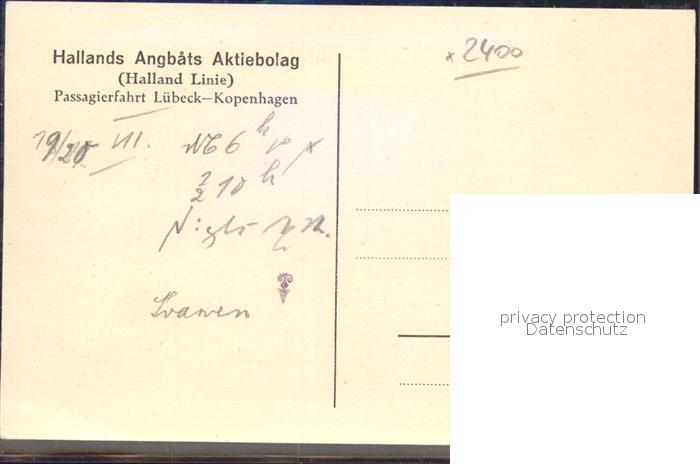 Hallands Angbåts Aktiebolag
(Halland Linie)
Passagierfahrt Lübeck—Kopenhagen
x 2400
19/20 VII.
6 h
½ 10 h
Svanen
privacy protection
Datenschutz